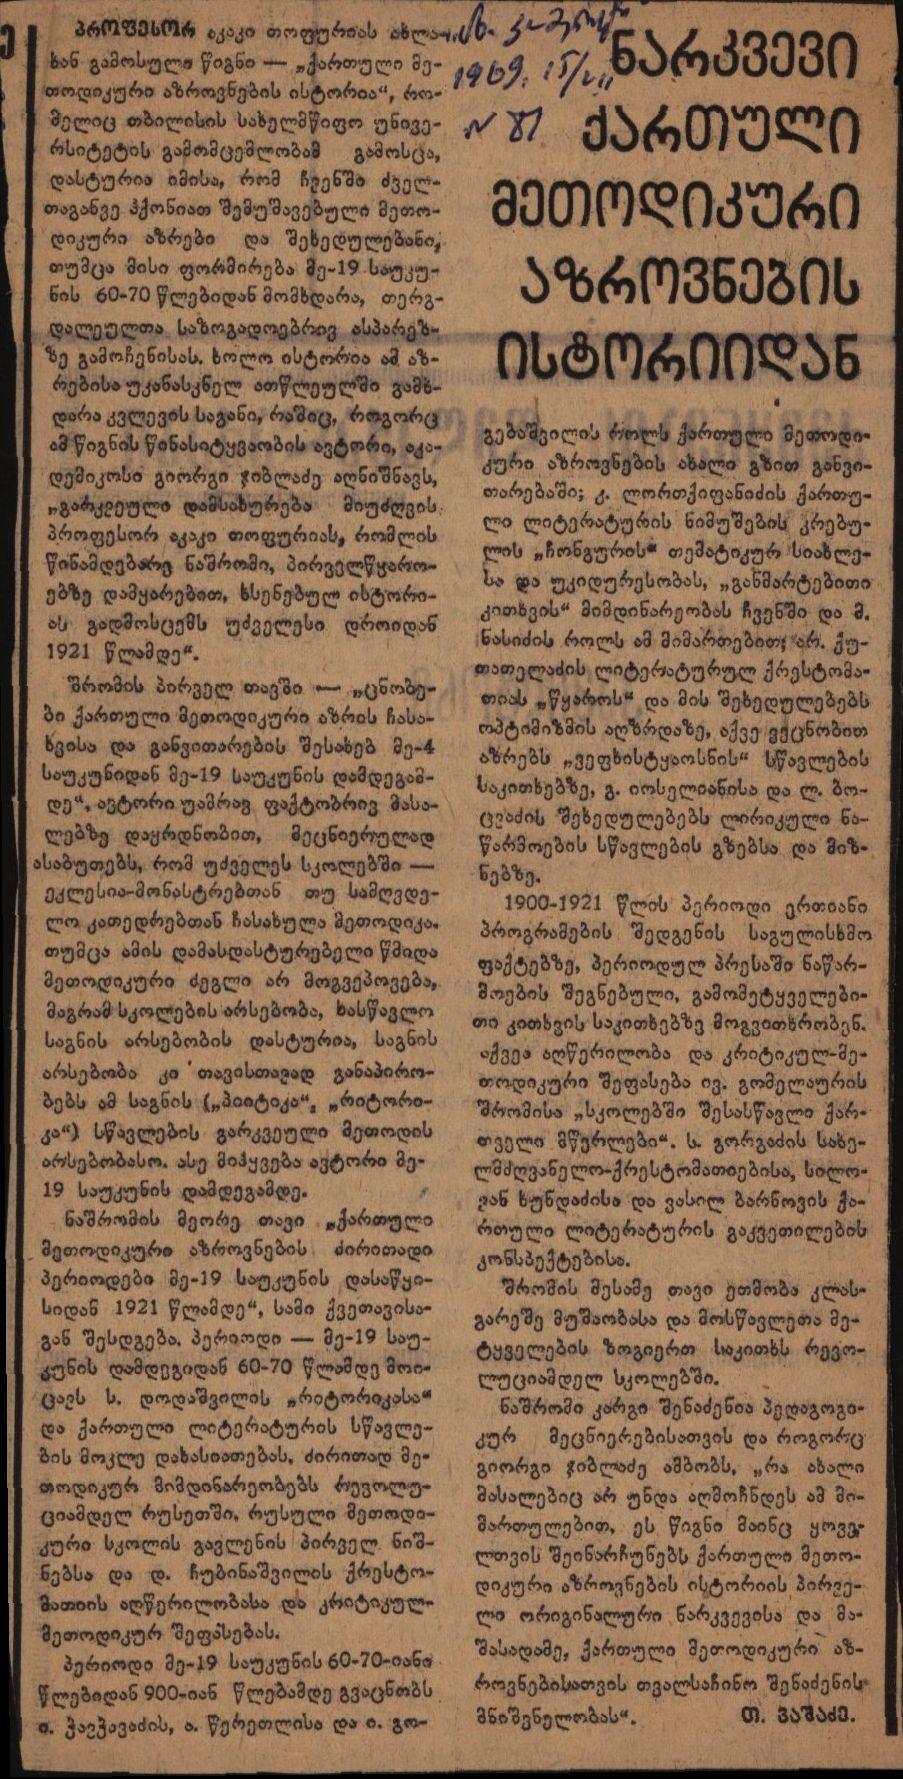 ნარკვევი
ქართული
მეთოდიკური
აზროვნების
ისტორიიდან
1969. 15/VII
N 81
პროფესორ აკაკი თოფურიას ახლა-
ხან გამოსული წიგნი — „ქართული მე-
თოდიკური აზროვნების ისტორია“, რო-
მელიც თბილისის სახელმწიფო უნივე-
რსიტეტის გამომცემლობამ გამოსცა,
დასტურია იმისა, რომ ჩვენში ძველ-
თაგანვე ჰქონიათ შემუშავებული მეთო-
დიკური აზრები და შეხედულებანი,
თუმცა მისი ფორმირება მე-19 საუკუ-
ნის 60-70 წლებიდან მომხდარა, თერგ-
დალეულთა საზოგადოებრივ ასპარეზ-
ზე გამოჩენისას. ხოლო ისტორია ამ აზ-
რებისა უკანასკნელ ათწლეულში გამხ-
დარა კვლევის საგანი, რაშიც, როგორც
ამ წიგნის წინასიტყვაობის ავტორი, აკა-
დემიკოსი გიორგი ჯიბლაძე აღნიშნავს,
„გარკვეული დამსახურება მიუძღვის
პროფესორ აკაკი თოფურიას, რომლის
წინამდებარე ნაშრომი, პირველწყარო-
ებზე დამყარებით, ხსენებულ ისტორი-
ას გადმოსცემს უძველესი დროიდან
1921 წლამდე“.
შრომის პირველ თავში — „ცნობე-
ბი ქართული მეთოდიკური აზრის ჩასა-
ხვისა და განვითარების შესახებ მე-4
საუკუნიდან მე-19 საუკუნის დამდეგამ-
დე“, ავტორი უამრავ ფაქტობრივ მასა-
ლებზე დაყრდნობით, მეცნიერულად
ასაბუთებს, რომ უძველეს სკოლებში —
ეკლესია-მონასტრებთან თუ სამღვდე-
ლო კათედრებთან ჩასახულა მეთოდიკა.
თუმცა ამის დამასდასტურებელი წმიდა
მეთოდიკური ძეგლი არ მოგვეპოვება,
მაგრამ სკოლების არსებობა, სასწავლო
საგნის არსებობის დასტურია, საგნის
არსებობა კი თავისთავად განაპირო-
ბებს ამ საგნის („პიიტიკა“, „რიტორი-
კა“) სწავლების გარკვეული მეთოდის
არსებობასო. ასე მიჰყვება ავტორი მე-
19 საუკუნის დამდეგამდე.
ნაშრომის მეორე თავი „ქართული
მეთოდიკური აზროვნების ძირითადი
პერიოდები მე-19 საუკუნის დასაწყი-
სიდან 1921 წლამდე“, სამი ქვეთავისა-
გან შესდგება. პერიოდი — მე-19 საუ-
კუნის დამდეგიდან 60-70 წლამდე მოი-
ცავს ს. დოდაშვილის „რიტორიკასა“
და ქართული ლიტერატურის სწავლე-
ბის მოკლე დახასიათებას, ძირითად მე-
თოდიკურ მიმდინარეობებს რევოლუ-
ციამდელ რუსეთში, რუსული მეთოდი-
კური სკოლის გავლენის პირველ ნიშ-
ნებსა და დ. ჩუბინაშვილის ქრესტო-
მათიის აღწერილობასა და კრიტიკულ-
მეთოდიკურ შეფასებას.
პერიოდი მე-19 საუკუნის 60-70-იანი
წლებიდან 900-იან წლებამდე გვაცნობს
ი. ჭავჭავაძის, ა. წერეთლისა და ი. გო-
გებაშვილის როლს ქართული მეთოდი-
კური აზროვნების ახალი გზით განვი-
თარებაში; კ. ლორთქიფანიძის ქართუ-
ლი ლიტერატურის ნიმუშების კრებუ-
ლის „ჩონგურის“ თემატიკურ სიახლე-
სა და უკიდურესობას, „განმარტებითი
კითხვის“ მიმდინარეობას ჩვენში და მ.
ნასიძის როლს ამ მიმართებით; არ. ქუ-
თათელაძის ლიტერატურულ ქრესტომა-
თიას „წყაროს“ და მის შეხედულებებს
ოპტიმიზმის აღზრდაზე, აქვე ვეცნობით
აზრებს „ვეფხისტყაოსნის“ სწავლების
საკითხებზე, გ. იოსელიანისა და ლ. ბო-
ცვაძის შეხედულებებს ლირიკული ნა-
წარმოების სწავლების გზებსა და მიზ-
ნებზე.
1900-1921 წლის პერიოდი ერთიანი
პროგრამების შედგენის საგულისხმო
ფაქტებზე, პერიოდულ პრესაში ნაწარ-
მოების შეგნებული, გამომეტყველები-
თი კითხვის საკითხებზე მოგვითხრობენ.
აქვეა აღწერილობა და კრიტიკულ-მე-
თოდიკური შეფასება ივ. გომელაურის
შრომისა „სკოლებში შესასწავლი ქარ-
თველი მწერლები“. ს. გორგაძის სახე-
ლმძღვანელო-ქრესტომათიებისა, სილო-
ვან ხუნდაძისა და ვასილ ბარნოვის ქა-
რთული ლიტერატურის გაკვეთილების
კონსპექტებისა.
შრომის მესამე თავი ეთმობა კლას-
გარეშე მუშაობასა და მოსწავლეთა მე-
ტყველების ზოგიერთ საკითხს რევო-
ლუციამდელ სკოლებში.
ნაშრომი კარგი შენაძენია პედაგოგი-
კურ მეცნიერებისათვის და როგორც
გიორგი ჯიბლაძე ამბობს, „რა ახალი
მასალებიც არ უნდა აღმოჩნდეს ამ მი-
მართულებით, ეს წიგნი მაინც ყოვე-
ლთვის შეინარჩუნებს ქართული მეთო-
დიკური აზროვნების ისტორიის პირვე-
ლი ორიგინალური ნარკვევისა და მა-
შასადამე, ქართული მეთოდიკური აზ-
როვნებისათვის თვალსაჩინო შენაძენის
მნიშვნელობას“.
თ. ვაშაძე.